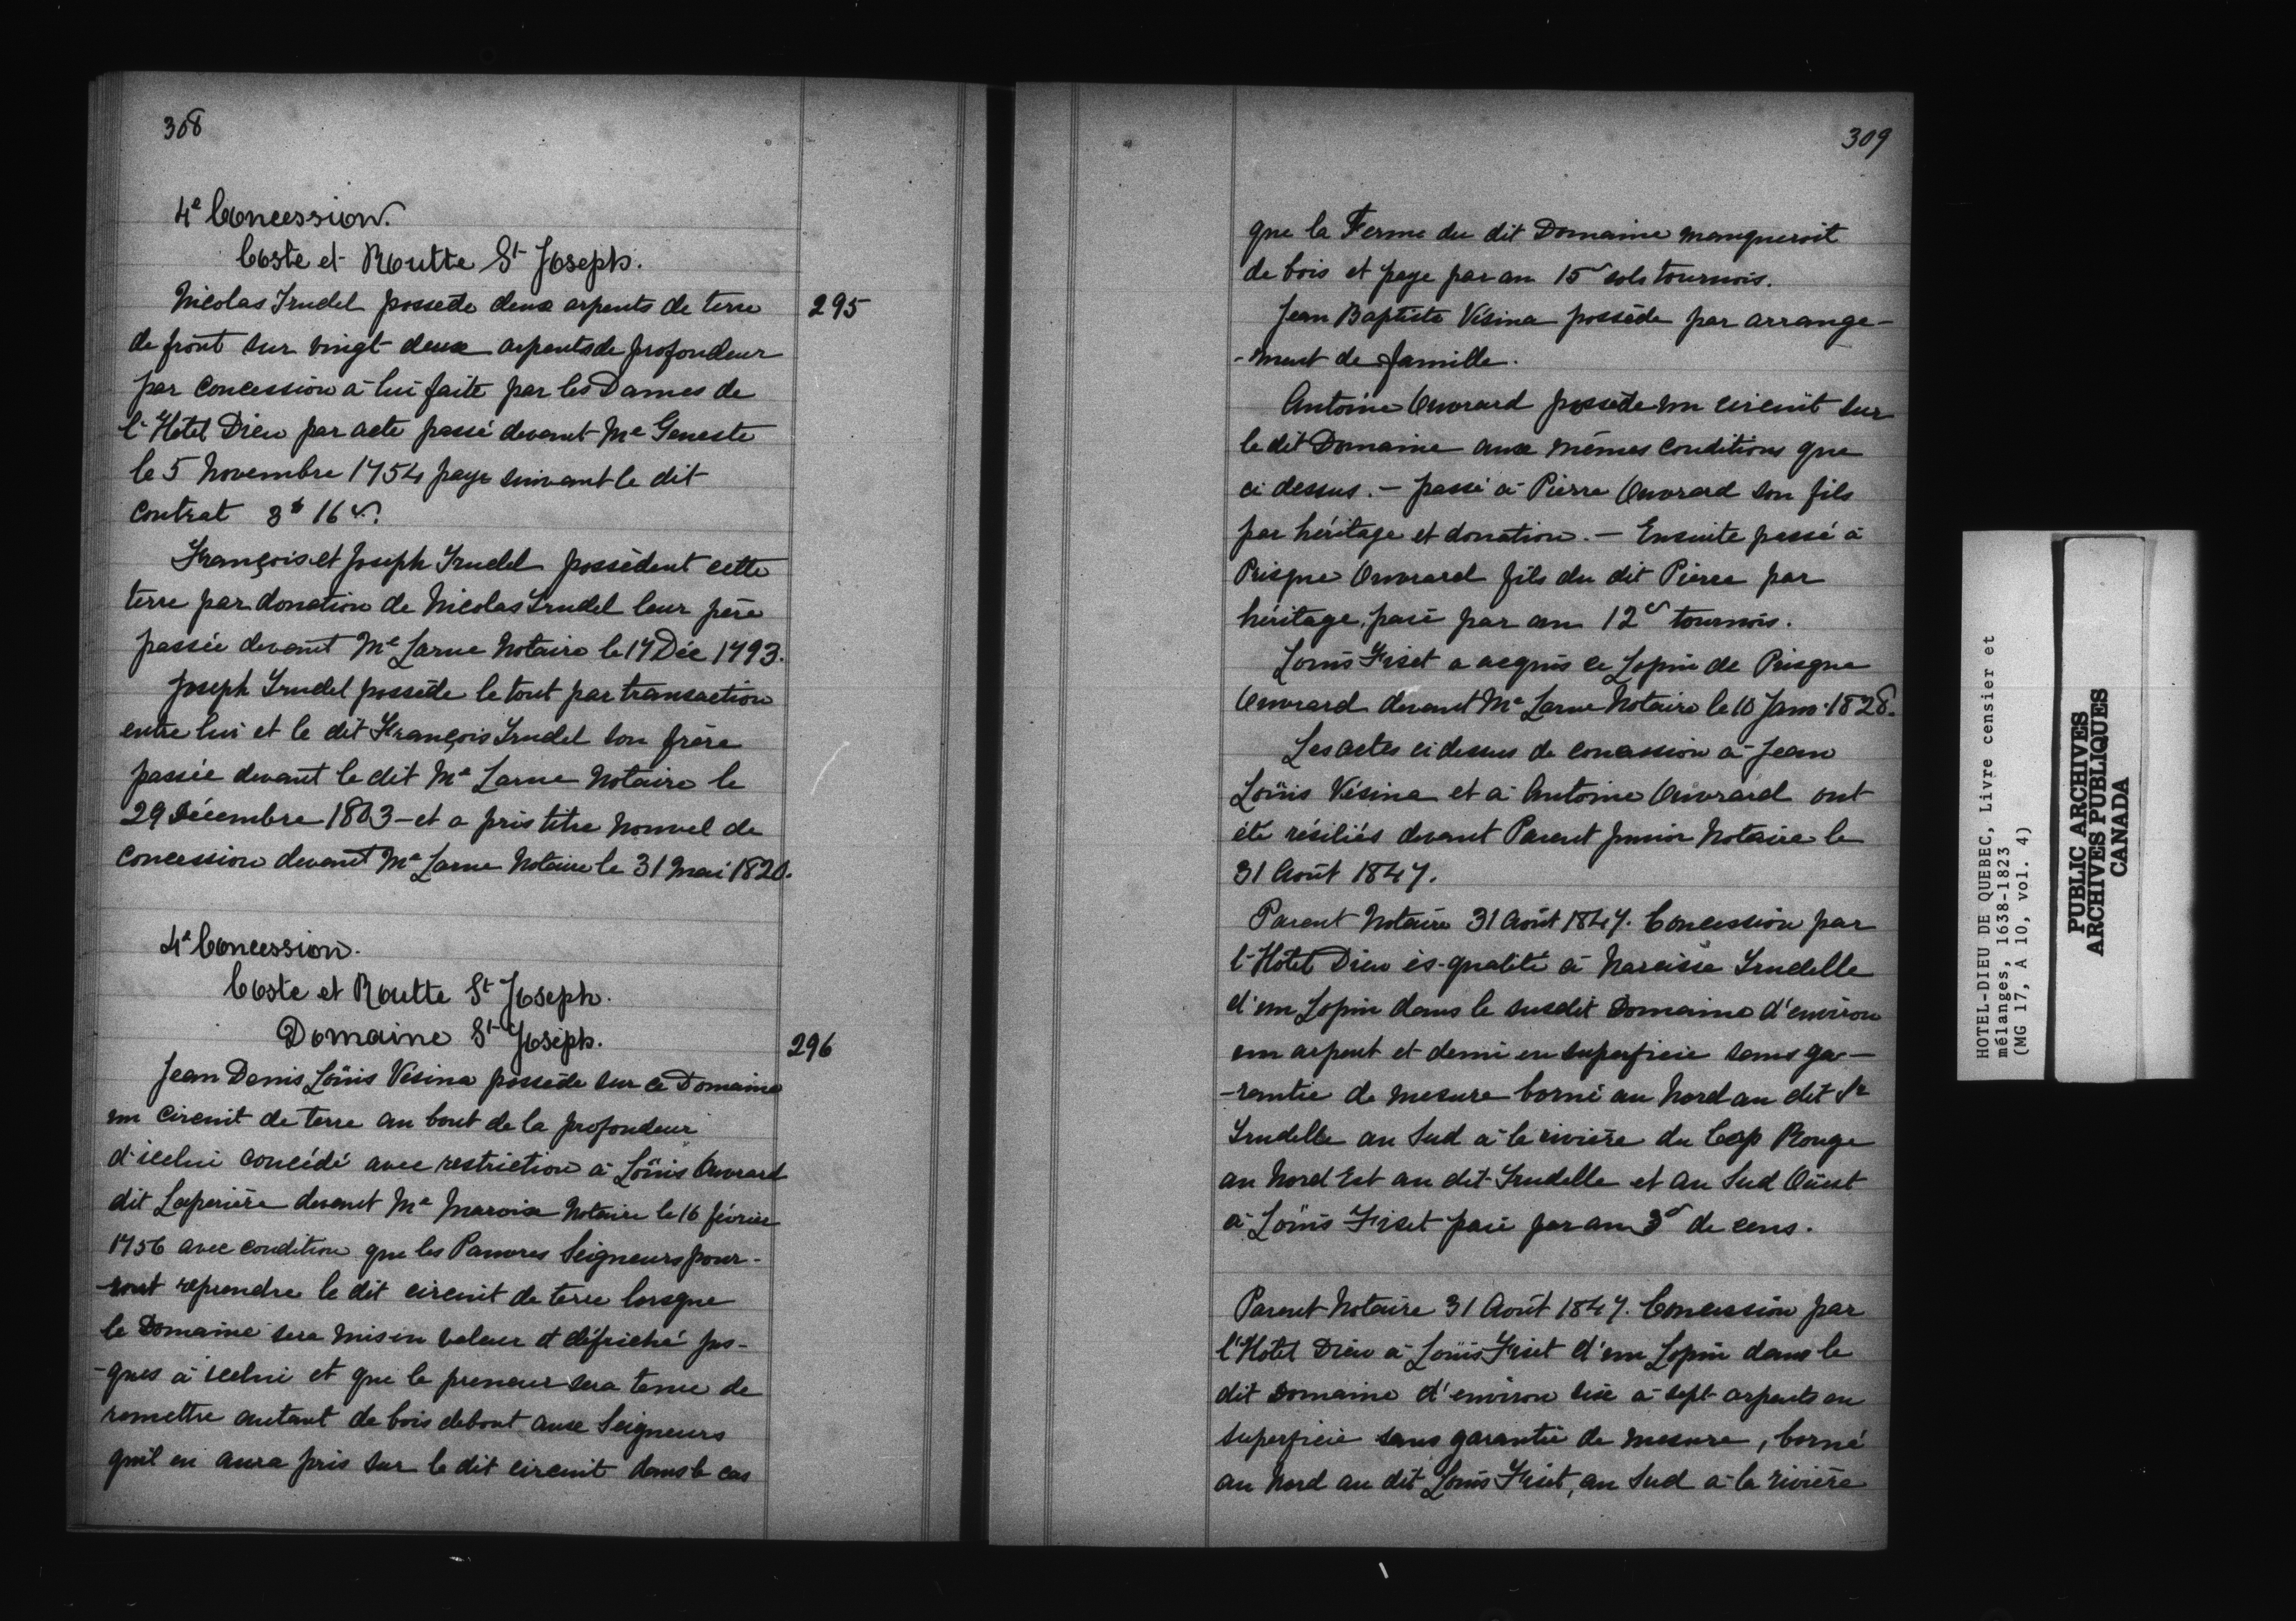 308
4e Concession.
Coste et Routte St Joseph.
295
Nicolas Trudel possede deux arpents de terre
de front sur vingt deux arpents de profondeur
par concession à lui faite par les Dames de
l'Hotel Dieu par acte passé devant Me Geneste
le 5 Novembre 1754 paye suivant le dit
contrat 3# 16s.
François et Joseph Trudel possèdent cette
terre par donation de Nicolas Trudel leur père
passée devant Me Larue Notaire le 17 Déc 1793.
Joseph Trudel possède le tout par transaction
entre lui et le dit François Trudel son frère
passée devant le dit Me Larue Notaire le
29 Décembre 1803 - et a pris titre nouvel de
concession devant Me Larue Notaire le 31 Mai 1820.
4e Concession.
Coste et Routte St Joseph.
Domaine St Joseph.
296
Jean Denis Loüis Vésina possède sur ce Domaine
un circuit de terre au bout de la profondeur
d'icelui concédé avec restriction à Loüis Ouvrard
dit Laperière devant Me Marois Notaire le 16 février
1756 avec condition que les Pauvres Seigneurs pour-
-ront reprendre le dit circuit de terre lorsque
le Domaine sera mis en valeur et défriché jus-
-ques à icelui et que le preneur sera tenu de
remettre autant de bois debout aux Seigneurs
qu'il en aura pris sur le dit circuit dans le cas
309
que la Ferme du dit Domaine manqueroit
de bois et paye par an 15 sols tournois.
Jean Baptiste Vésina possède par arrange-
-ment de famille.
Antoine Ouvrard possède un circuit sur
le dit Domaine aux mêmes conditions que
ci dessus. - passé à Pierre Ouvrard son fils
par héritage et donation. - Ensuite passé à
Prisque Ouvrard fils du dit Pierre par
héritage, paie par an 12s tournois.
Louis Fiset a acquis ce Lopin de Prisque
Ouvrard devant Me Larue Notaire le 10 Janv. 1828.
Les actes ci dessus de concession à Jean
Loüis Vésina et à Antoine Ouvrard ont
été résiliés devant Parent Junior Notaire le
31 Août 1847.
Parent Notaire 31 Août 1847. Concession par
l'Hôtel Dieu ès-qualité à Narcisse Trudelle
d'un Lopin dans le susdit Domaine d'environ
un arpent et demi en superficie sans ga-
-rantie de mesure borné au Nord au dit Sr
Trudelle au Sud à la rivière du Cap Rouge
au Nord Est au dit Trudelle et au Sud Oüest
à Loüis Fiset paie par an 3s de cens.
Parent Notaire 31 Août 1847. Concession par
l'Hôtel Dieu à Loüis Fiset d'un Lopin dans le
dit Domaine d'environ six à sept arpents en
superficie sans garantie de mesure, borné
au Nord au dit Louis Fiset, au Sud à la rivière
HOTEL-DIEU DE QUEBEC, Livre censier et
mélanges, 1638-1823
(MG 17, A 10, vol. 4)
PUBLIC ARCHIVES
ARCHIVES PUBLIQUES
CANADA